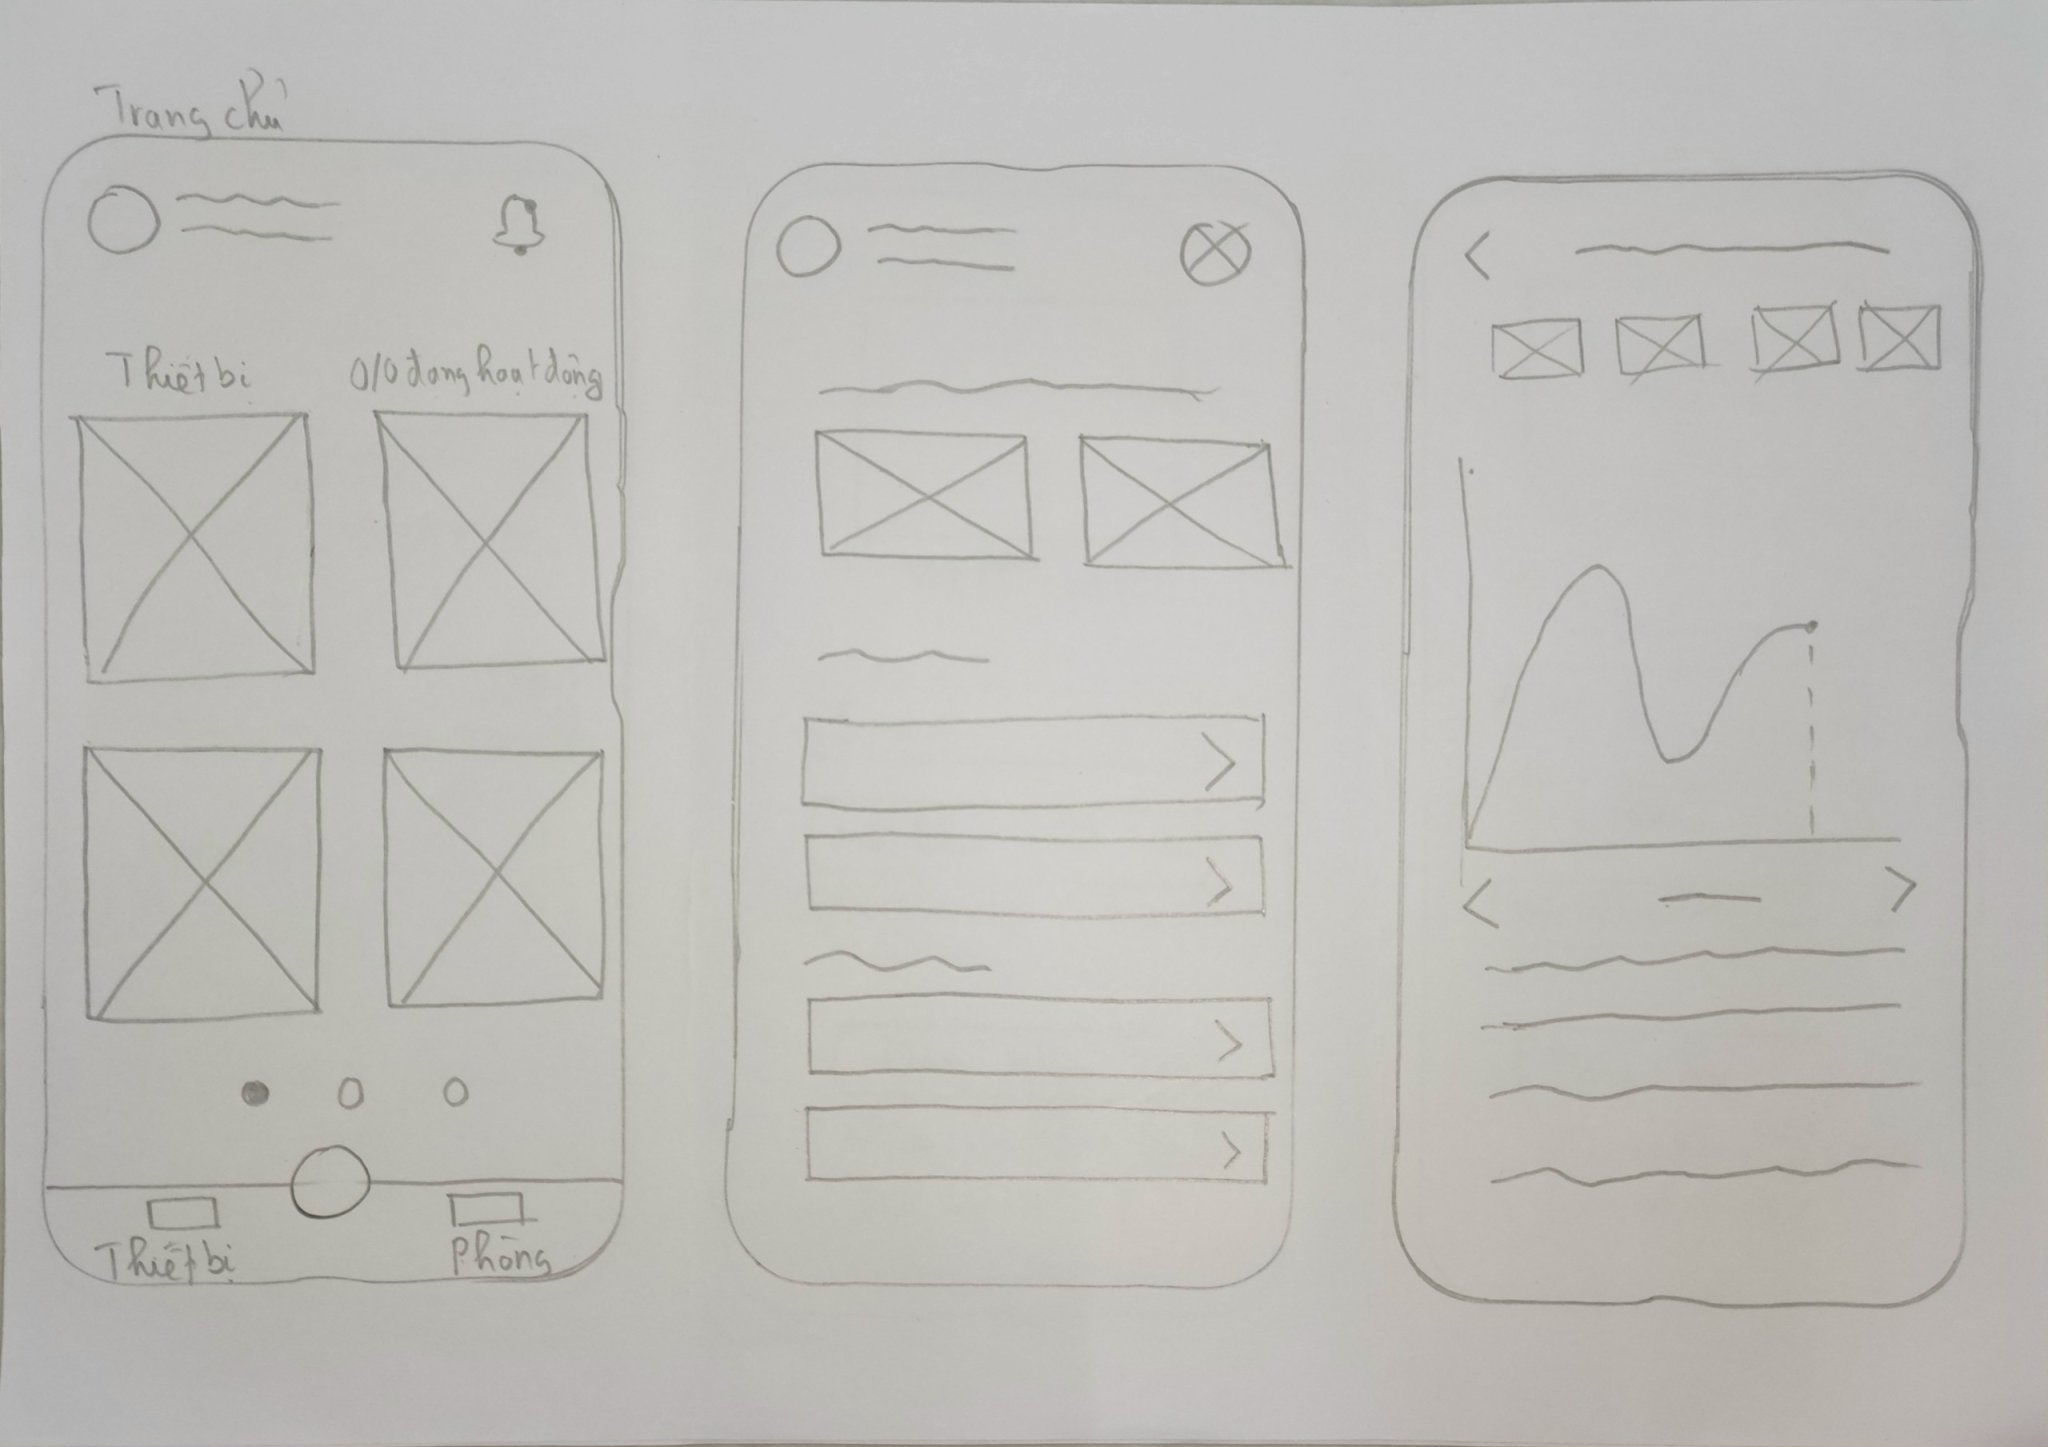 Trang chủ
Thiết bị
0/0 đang hoạt động
Thiết bị
Phòng